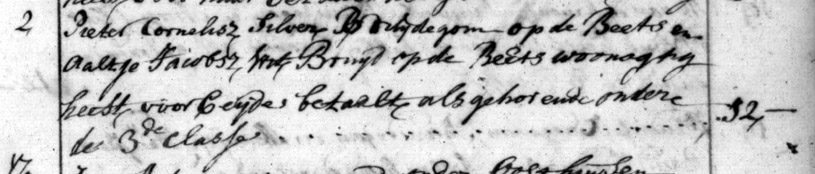 2 Pieter Cornelisz Silver Bruydegom op de Beets en
Aaltje Jacobsz Bruyd op de Beets woonagtig
heeft voor beyde betaalt als gehorende onder
de 3de classe 12,—